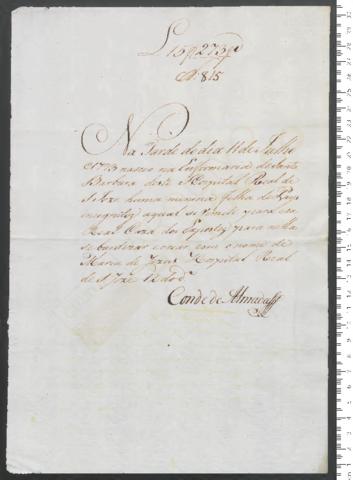 L 15 f 273 v
Nº 815
Na Tarde do dia 11 de Julho
nasceo na Enfermaria de Santa
Barbara deste Hospital Real de
huma menina filha de Pays
incognitos a qual se remete para
Real Caza dos Expostos para nella
se bautizar com o nome de
Maria de Jezus Hospital Real
de S. Joze 12 do dº
Conde de Almada